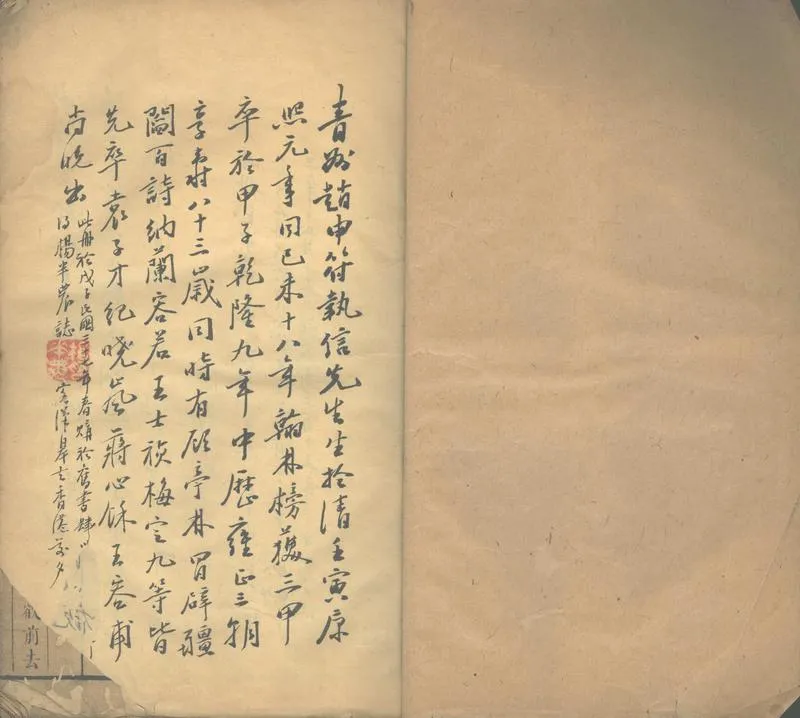 青州趙申符執信先生生於清壬寅康
熙元年同己未十八年翰林榜獲三甲
卒於甲子乾隆九年中歷雍正三朝
享壽八十三歲同時有顧亭林冒辟疆
閻百詩納蘭容若王士禎梅定九等皆
先卒袁子才紀曉嵐蔣心餘王容甫
尚晚出
此冊於戊子民國三十七年春購於舊書肆
楊半農誌 客漢皋去香港前夕
前去